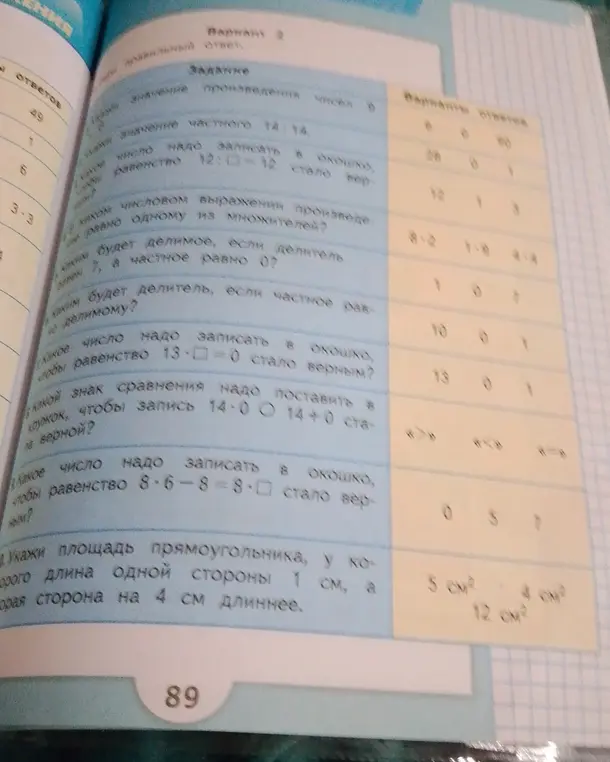 Вариант 2
правильный ответ.
Задание
Варианты ответов
ОТВЕТОВ
49
1
6
3·3
значение произведения чисел 6
6 0 60
значение частного 14 : 14.
28 0 1
число надо записать в окошко,
равенство 12 : □ = 12 стало вер-
12 1 3
каком числовом выражении произведе-
равно одному из множителей?
8·2 1·6 4·4
будет делимое, если делитель
7, а частное равно 0?
1 0 7
будет делитель, если частное рав-
делимому?
10 0 1
Какое число надо записать в окошко,
чтобы равенство 13 · □ = 0 стало верным?
13 0 1
Какой знак сравнения надо поставить в
кружок, чтобы запись 14 · 0 ○ 14 + 0 ста-
ла верной?
«>» «<» «=»
Какое число надо записать в окошко,
чтобы равенство 8 · 6 − 8 = 8 · □ стало вер-
ным?
0 5 7
Укажи площадь прямоугольника, у ко-
торого длина одной стороны 1 см, а
вторая сторона на 4 см длиннее.
5 см² 4 см²
12 см²
89